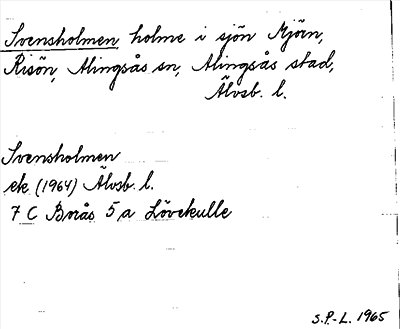 Svensholmen, holme i sjön Mjörn,
Risön, Alingsås sn, Alingsås stad,
Älvsb. l.
Svensholmen
ek (1964) Älvsb. l.
7 C Borås 5 a Lövekulle
S.P.-L. 1965